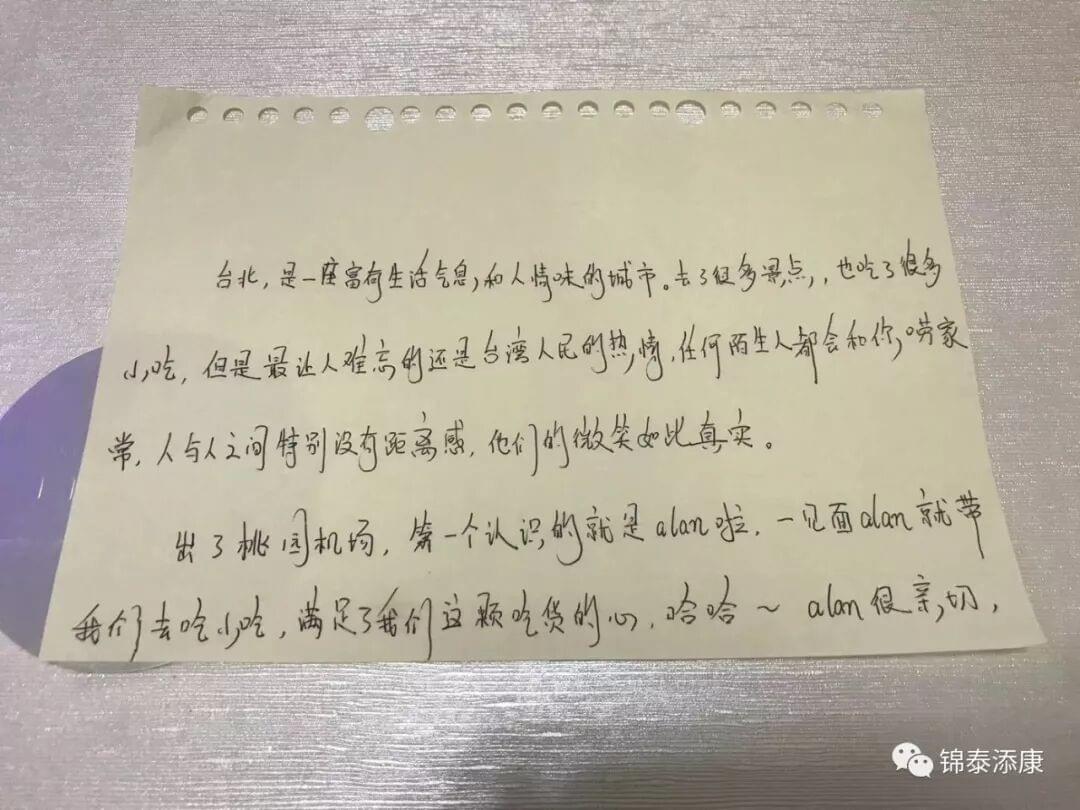 台北，是一座富有生活气息，和人情味的城市。去了很多景点，，也吃了很多
小吃，但是最让人难忘的还是台湾人民的热情，任何陌生人都会和你唠家
常，人与人之间特别没有距离感，他们的微笑如此真实。
出了桃园机场，第一个认识的就是alan啦，一见面alan就带
我们去吃小吃，满足了我们这颗吃货的心，哈哈～alan很亲切，
锦泰添康